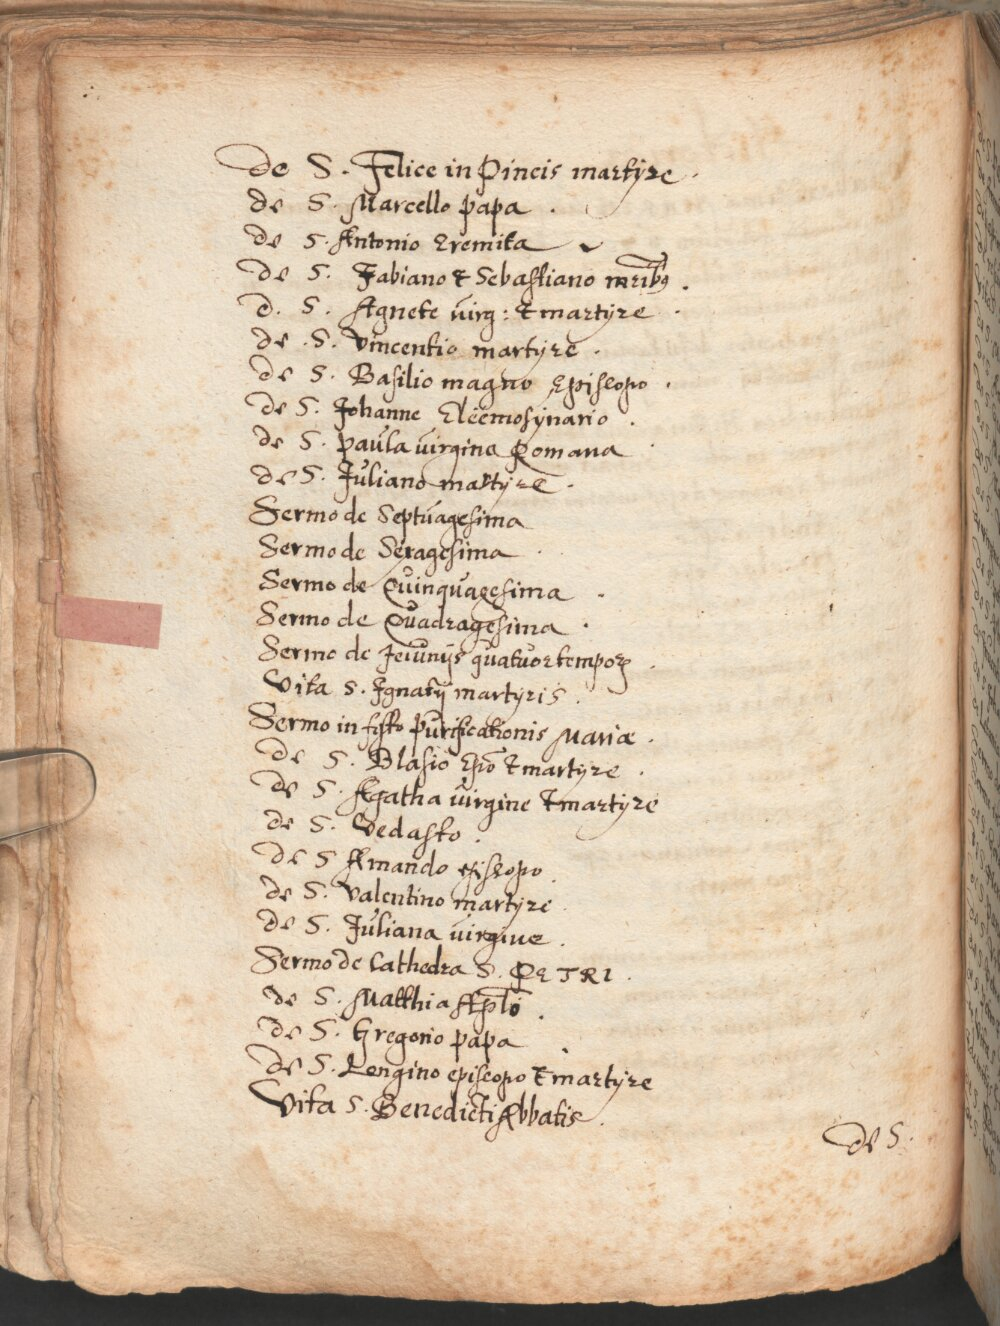 de S. Felice in Pincis martÿre.
de S. Marcello papa.
de S. Antonio Eremita
de S. Fabiano & Sebastiano mrib9.
d. S. Agnete virg: & martÿre.
de .S. Vincentio martÿre.
de S. Basilio magno Episcopo.
de S. Johanne Eleemosÿnario.
de S. paula virgine Romana
de S. Juliano martÿre.
Sermo de Septuagesima
Sermo de Sexagesima.
Sermo de Quinquagesima.
Sermo de Quadragesima.
Sermo de Jeiunÿs quatuortemporꝝ.
Vita S. Ignatÿ martÿris.
Sermo in festo purificationis Mariæ.
de S. Blasio Epõ & martÿre.
de S. Agatha virgine & martÿre
de S. Vedasto.
de S Amando episcopo.
de S. Valentino martÿre.
de S. Juliana virgine.
Sermo de Cathedra S. PETRI.
de S. Matthia Aplõ.
de S. Gregorio papa.
de S. Longino episcopo & martÿre
Vita S. Benedicti Abbatis.
de S.